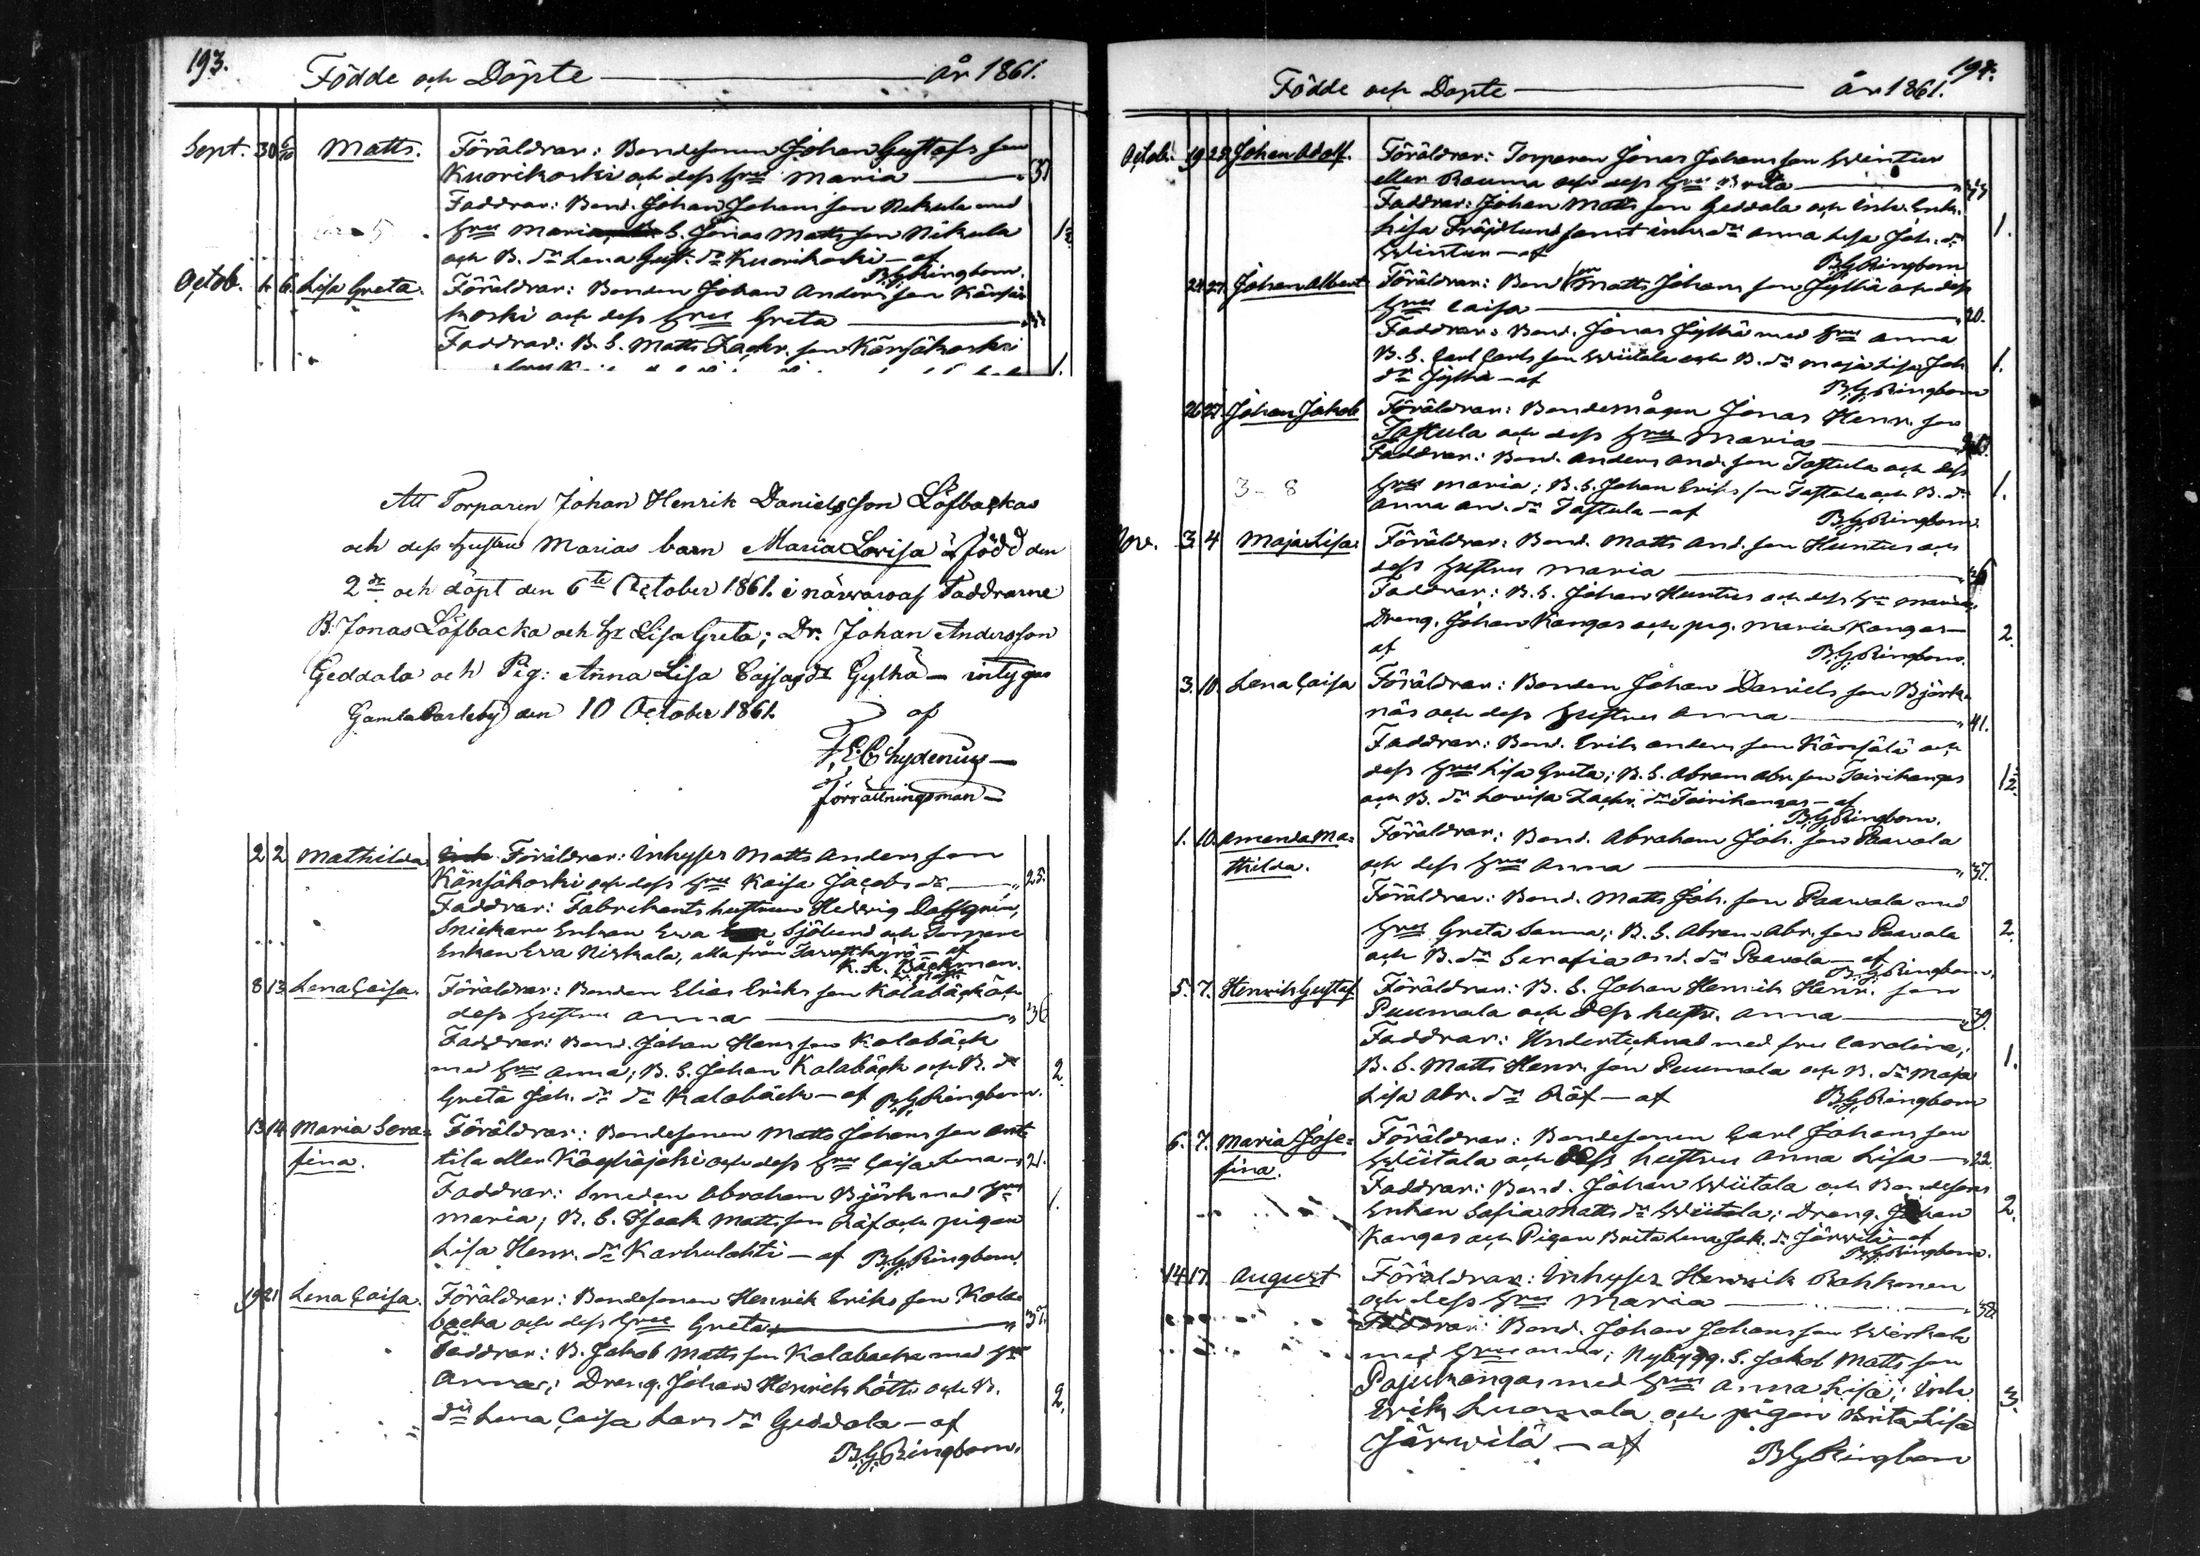 193.
Födde och Döpte — år 1861.
Sept. 30 6/10 Matts. Föräldrar: Bondesonen Johan Gustafs son
Kuorikoski och dess hru Maria — " 37
Faddrar: Bond. Johan Johans son Nikula med
hru Maria, B. S. Jonas Matts son Nikula
och B. dr Lena Gust. dr Kuorikoski — af
B. G. Ringbom.
Octob. 1. 6. Lisa Greta. Föräldrar: Bonden Johan Anders son Känsä-
koski och dess hru Greta — " 33
Faddrar: B. S. Matts Zachr. son Känsäkoski
1.
Att Torparen Johan Henrik Danielsson Löfbackas
och dess hustru Marias barn Maria Lovisa är född den
2dr och döpt den 6te October 1861. i närwaro af Faddrarne
B. Jonas Löfbacka och hr Lisa Greta; Dr. Johan Andersson
Geddala och Pig: Anna Lisa Cajsas dr Gylhä — intygas
Gamla Carleby den 10 October 1861.
af
F. E. Chydenius —
förrättningsman —
2 2 Mathilda Föräldrar: Inhyses Matts Anders son
Känsäkoski och dess hru Kaisa Jacobs dr — " 25.
Faddrar: Fabrikants hustrun Hedvig Dahlgrén,
Snickare Enkan Eva Sjölund och Torpare
Enkan Eva Niskala, alla från — af
K. A. Backman.
8 13. Lena Caisa. Föräldrar: Bonden Elias Eriks son Kolabäck och
dess hustru Anna — " 36
Faddrar: Bond. Johan Hans son Kolabäck
med hru Anna; B. S. Johan Kolabäck och B. dr 2.
Greta Joh. dr dr Kolabäck — af B. G. Ringbom.
13 14 Maria Sera- Föräldrar: Bondesonen Matts Johans son Ant-
fina. tila eller och dess hru Caisa Lena — " 21.
Faddrar: Smeden Abraham Björk med hru
Maria; B. S. Isaak Matts son Räf och pigan 1.
Lisa Henr. dr Karhulahti — af B. G. Ringbom.
19 21 Lena Caisa. Föräldrar: Bondesonen Henrik Eriks son Kola-
backa och dess hru Greta — " 37.
Faddrar: B. Jakob Matts son Kolabacka med hru
Anna; Dreng. Johan Henrik Lötti och B. 2.
dr Lena Caisa Lars dr Geddala — af
B. G. Ringbom.
194.
Födde och Döpte — år 1861.
Octob. 19 23 Johan Adolf. Föräldrar: Torparen Jonas Johans son Wintur
eller Rauma och dess hru Brita — " 33
Faddrar: Johan Matts son Geddala och Inh. Enk.
Lisa Fröjdlund samt inh. dr Anna Lisa Joh. dr 1.
Wintur — af B. G. Ringbom
24 27. Johan Albert Föräldrar: Bond. Matts Johans son Jylhä och dess
hru Caisa — " 20.
Faddrar: Bond. Jonas Jylhä med hru Anna
B. S. Carl Carls son Wiitala och B. dr Maja Lisa Joh. 1.
dr Jylhä — af B. G. Ringbom
26 27. Johan Jakob Föräldrar: Bondemågen Jonas Henr. son
Tastula och dess hru Maria —
Faddrar: Bond. Anders And. son Tastula och dess
3 - 8 hru Maria; B. S. Johan Eriks son Tastula och B. dr 1.
Anna An. dr Tastula — af B. G. Ringbom.
Nov. 3. 4 Maja Lisa. Föräldrar: Bond. Matts And. son Huntus och
dess hustru Maria — " 36
Faddrar: B. S. Johan Huntus och dess hru Maria,
Dreng. Johan Kangas och pig. Maria Kangas — 2.
af B. G. Ringbom.
3. 10. Lena Caisa Föräldrar: Bonden Johan Daniels son Björk-
näs och dess hustru Anna — " 41.
Faddrar: Bond. Erik Anders son Känsälä och
dess hru Lisa Greta; B. S. Abram Abr. son Toirikangas
och B. dr Lovisa Zachr. dr Toirikangas — af
B. G. Ringbom.
1. 10. Amanda Ma- Föräldrar: Bond. Abraham Joh. son Paavola
thilda. och dess hru Anna — " 37.
Föräldrar: Bond. Matts Joh. son Paavola med
hru Greta Sanna; B. S. Abram Abr. son Paavola 2.
och B. dr Serafia And. dr Paavola — af
B. G. Ringbom.
5. 7. Henrik Gustaf Föräldrar: B. S. Johan Henrik Henr. son
Puumala och dess hustr. Anna — " 39.
Faddrar: Undertecknad med fru Carolina; 1.
B. S. Matts Henr. son Puumala och B. dr Maja
Lisa Abr. dr Räf — af B. G. Ringbom
6. 7. Maria Jose- Föräldrar: Bondesonen Carl Johans son
fina. Wiitala och dess hustru Anna Lisa — " 22.
Faddrar: Bond. Johan Wiitala och Bondesons
Enkan Sofia Matts dr Wiitala; Dreng. Johan 2.
Kangas och Pigan Brita Lena Jak. dr Järwilä — af
B. G. Ringbom.
14 17. August Föräldrar: Inhyses Henrik Rahkonen
och dess hru Maria — " 38.
Faddrar: Bond. Johan Johans son Wirkala
med hru Anna; Nybygg. S. Jakob Matts son
Pajukangas med hru Anna Lisa; Inh. 3.
Erik Luomala och pigan Brita Lisa
Järwilä — af B G Ringbom